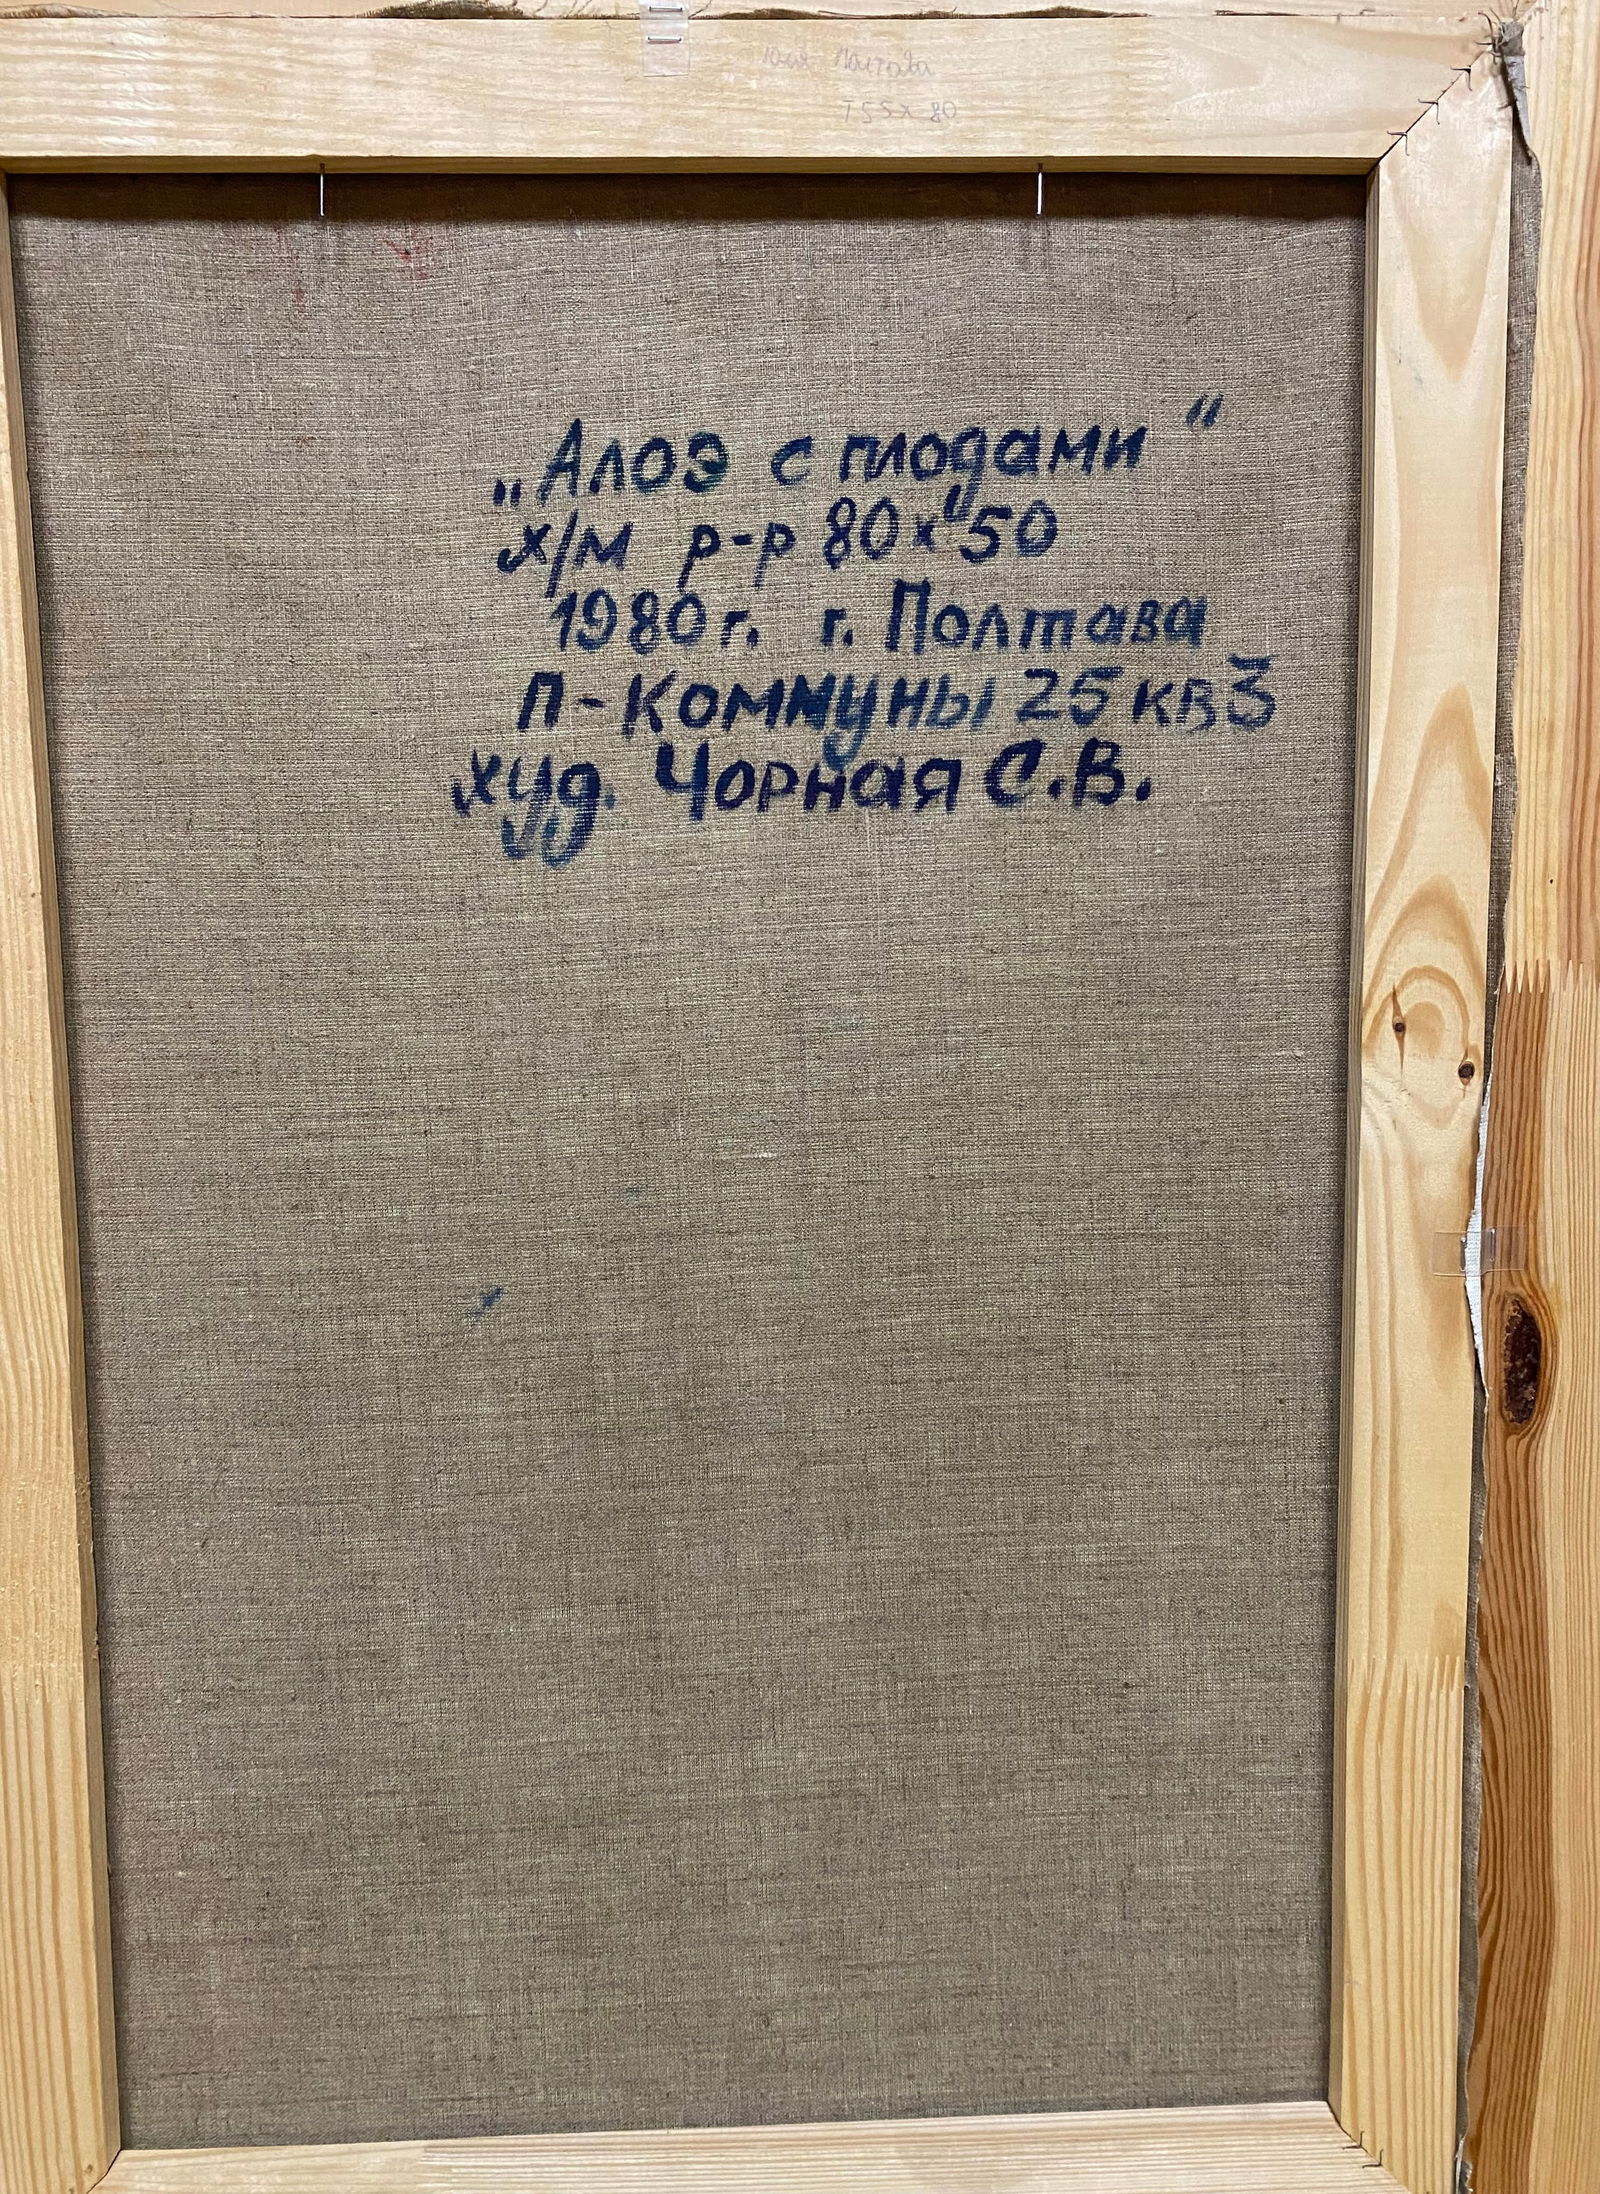 Полтава
55х80
„Алоэ с плодами"
х/м р-р 80х50
1980г. г. Полтава
П-Коммуны 25 кв 3
худ. Чорная С.В.